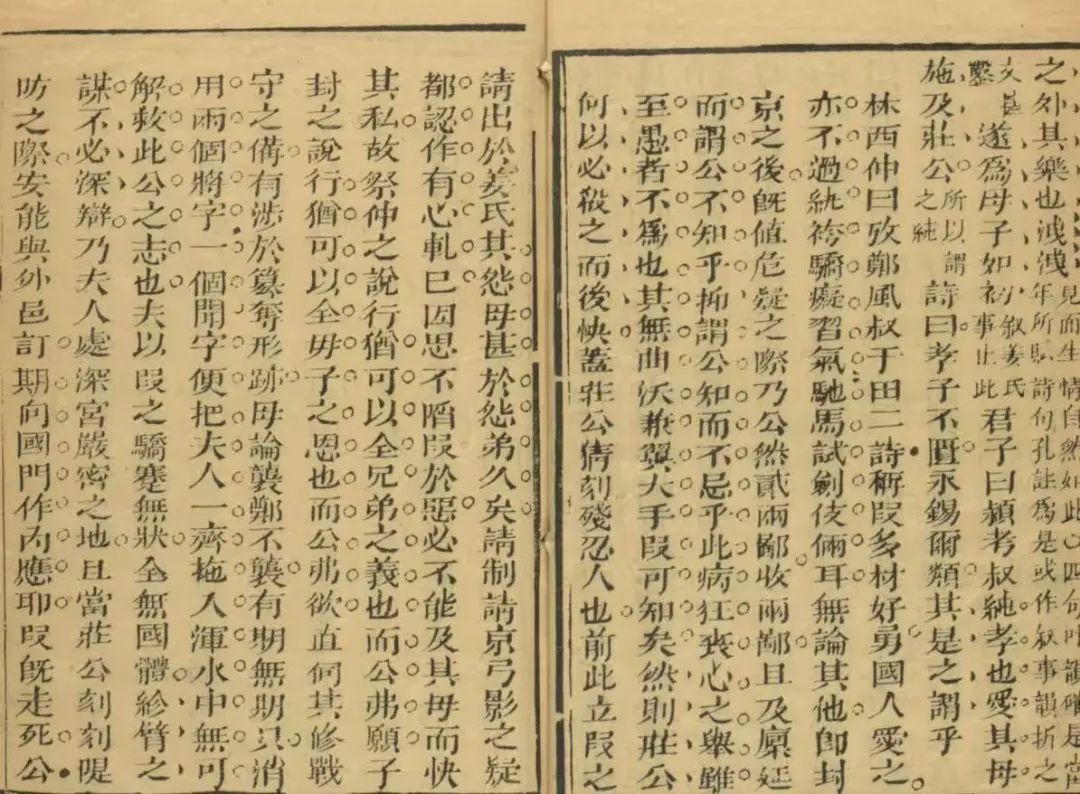 之外其樂也洩洩見而生情自然如此心四句叶韻確是當年所賦詩句孔註爲是或作叙事韻折之
文甚鑿遂爲母子如初叙姜氏事止此君子曰頴考叔純孝也愛其母
施及莊公所以謂之純詩曰孝子不匱永錫爾類其是之謂乎
林西仲曰攷鄭風叔于田二詩稱叚多材好勇國人愛之
亦不過紈袴驕癡習氣馳馬試劍伎倆耳無論其他卽封
京之後旣值危疑之際乃公然貳兩鄙收兩鄙且及廩延
而謂公不知乎抑謂公知而不忌乎此病狂喪心之舉雖
至愚者不爲也其無曲沃兼翼大手叚可知矣然則莊公
何以必殺之而後快蓋莊公猜刻殘忍人也前此立叚之
請出於姜氏其怨母甚於怨弟久矣請制請京弓影之疑
都認作有心軋已因思不䧟叚於惡必不能及其母而快
其私故祭仲之說行猶可以全兄弟之義也而公弗願子
封之說行猶可以全毋子之恩也而公弗欲直伺其修戰
守之備有涉於簒奪形跡毋論襲鄭不襲有期無期只消
用兩個將字一個開字便把夫人一齊拖入渾水中無可
解救此公之志也夫以叚之驕蹇無狀全無國體紾臂之
謀不必深辯乃夫人處深宮嚴密之地且當莊公刻刻隄
防之際安能與外邑訂期向國門作內應耶叚旣走死公